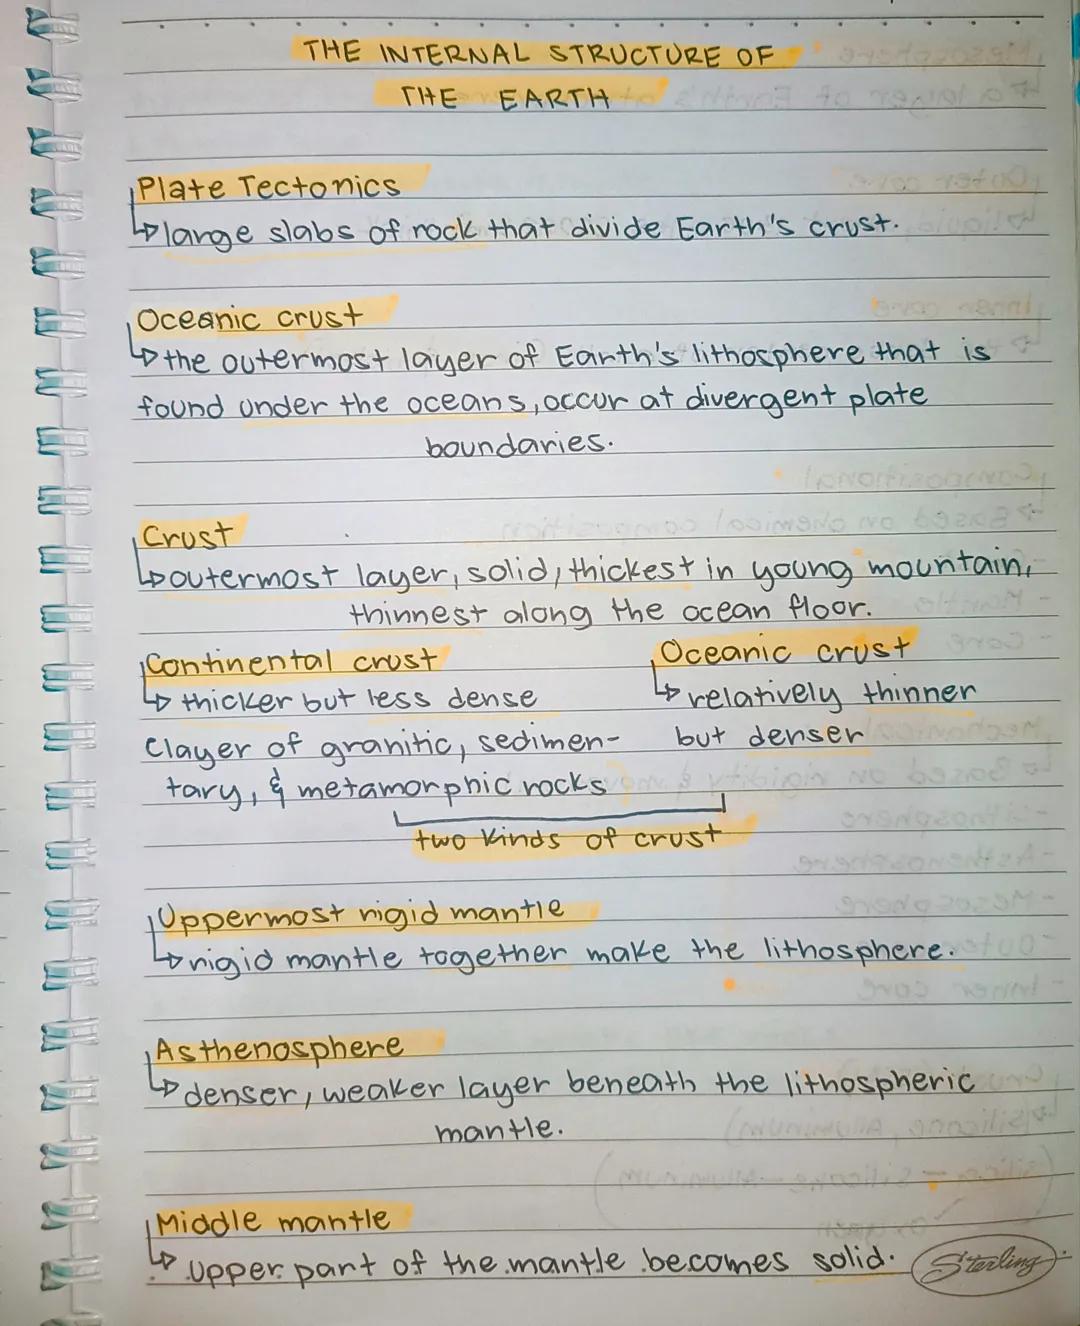 THE INTERNAL STRUCTURE OF
THE EARTH
Plate Tectonics
↳ large slabs of rock that divide Earth's crust.
Oceanic crust
↳ the outermost layer of Earth's lithosphere that is
found under the oceans, occur at divergent plate
boundaries.
Crust
↳ outermost layer, solid, thickest in young mountain,
thinnest along the ocean floor.
Continental crust
↳ thicker but less dense
Clayer of granitic, sedimen-
tary, & metamorphic rocks
Oceanic crust
↳ relatively thinner
but denser
two kinds of crust
Uppermost rigid mantle
↳ rigid mantle together make the lithosphere.
Asthenosphere
↳ denser, weaker layer beneath the lithospheric
mantle.
Middle mantle
↳ upper part of the mantle becomes solid.
Sterling